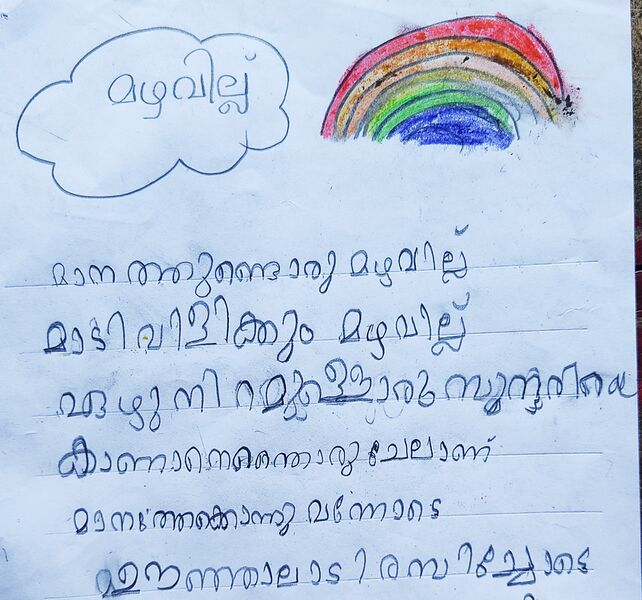 മഴവില്ല്
മാനത്തുണ്ടൊരു മഴവില്ല്
മാടിവിളിക്കും മഴവില്ല്
ഏഴുനിറമുള്ളൊരു സുന്ദരിയെ
കാണാനെന്തൊരു ചേലാണ്
മാനത്തേക്കൊന്നു വന്നോടെ
ഊഞ്ഞാലാടി രസിച്ചോട്ടെ